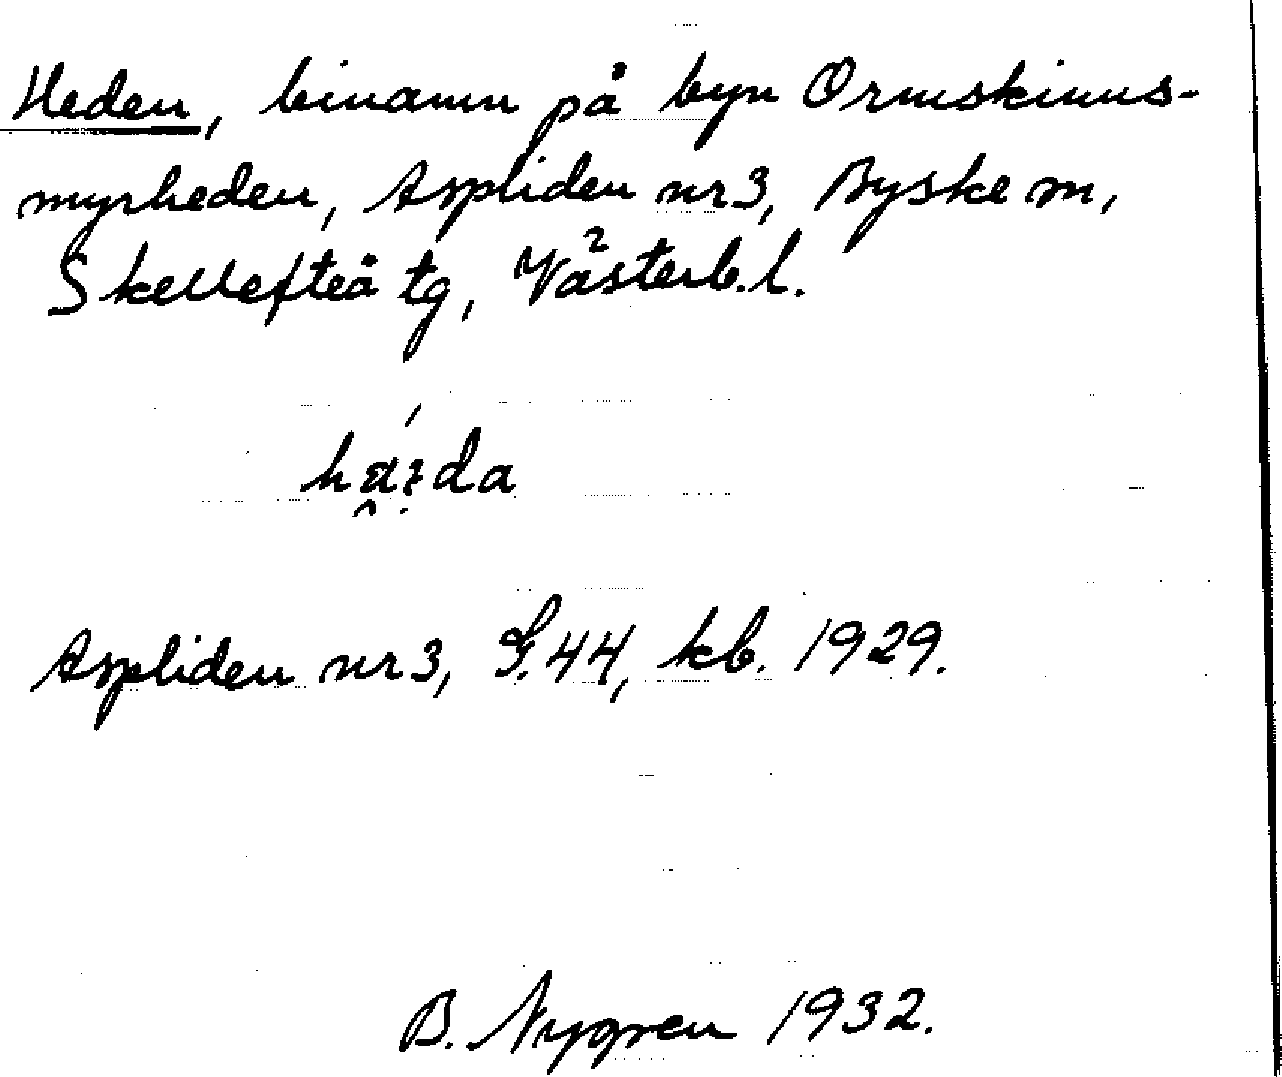 Heden, binamn på byn Ormskinns-
myrheden, Aspliden nr 3, Byske sn,
Skellefteå tg, Västerb. l.
Aspliden nr 3, G. 44, kb. 1929.
B. Nygren 1932.